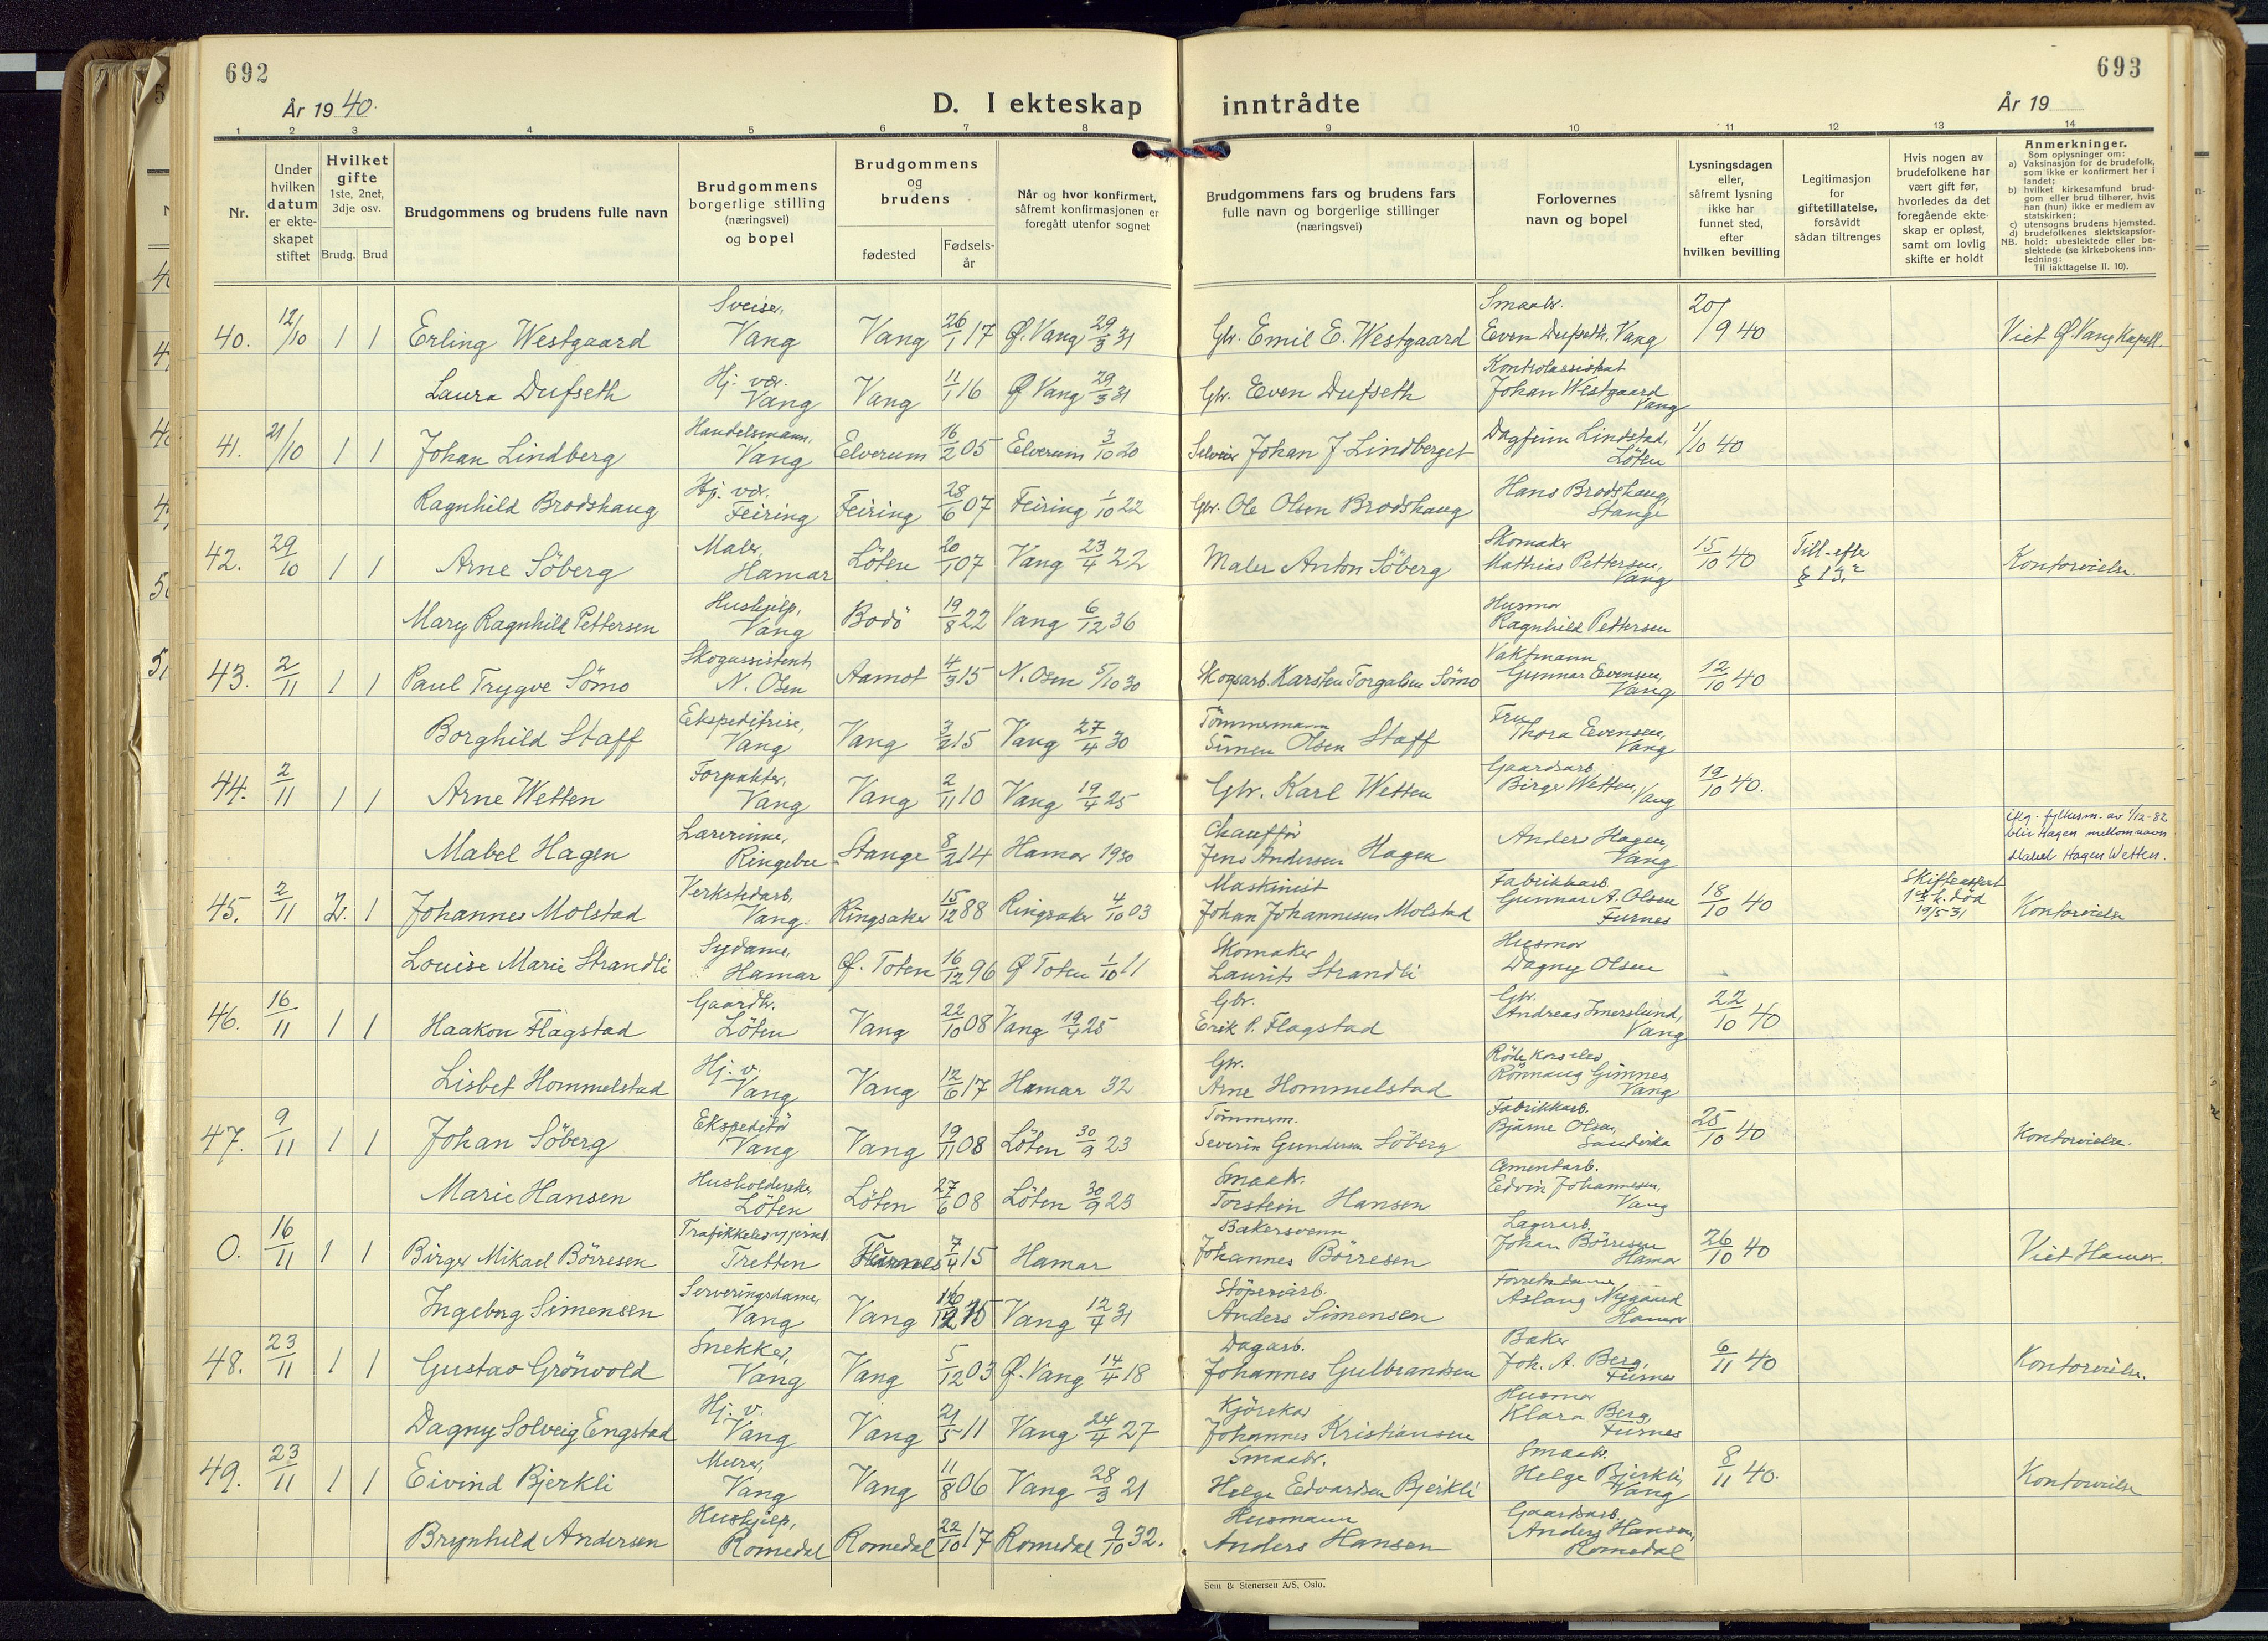 692
År 1940.
D. I ekteskap
inntrådte
År 19
693
1 2 3 4 5 6 7 8 9 10 11 12 13 14
Nr.
Under hvilken datum er ekteskapet stiftet
Hvilket gifte 1ste, 2net, 3dje osv.
Brudg. Brud
Brudgommens og brudens fulle navn
Brudgommens borgerlige stilling (næringsvei) og bopel
Brudgommens og brudens
fødested
Fødselsår
Når og hvor konfirmert, såfremt konfirmasjonen er foregått utenfor sognet
Brudgommens fars og brudens fars fulle navn og borgerlige stillinger (næringsvei)
Forlovernes navn og bopel
Lysningsdagen eller, såfremt lysning ikke har funnet sted, efter hvilken bevilling
Legitimasjon for giftetillatelse, forsåvidt sådan tiltrenges
Hvis nogen av brudefolkene har vært gift før, hvorledes da det foregående ekteskap er opløst, samt om lovlig skifte er holdt
Anmerkninger.
Som oplysninger om:
a) Vaksinasjon for de brudefolk, som ikke er konfirmert her i landet;
b) hvilket kirkesamfund brudgom eller brud tilhører, hvis han (hun) ikke er medlem av statskirken;
c) utensogns brudens hjemsted.
d) brudefolkenes slektskapsforhold: ubeslektede eller beslektede (se kirkebokens innledning:
NB. Til iakttagelse II. 10).
40. 12/10 1 1 Erling Westgaard Sveiser, Vang Vang 26/1 17 Ø. Vang 29/3 31 Gbr. Emil E. Westgaard Smaabr. Even Dufseth, Vang 20/9 40 Viet Ø. Vang Kapell.
Laura Dufseth Hj. vær. Vang Vang 11/1 16 Ø Vang 29/3 31 Gbr. Even Dufseth Kontrolassistent Johan Westgaard Vang
41. 21/10 1 1 Johan Lindberg Handelsmann, Vang Elverum 16/2 05 Elverum 3/10 20 Johan J Lindberget Dagfinn Lindstad, Löten 1/10 40
Ragnhild Brodshaug Hj. vær. Feiring Feiring 28/6 07 Feiring 1/10 22 Gbr. Ole Olsen Brodshaug Hans Brodshaug, Stange
42. 29/10 1 1 Arne Söberg Maler, Hamar Löten 20/1 07 Vang 23/4 22 Maler Anton Söberg Skomaker Mathias Pettersen, Vang 15/10 40 Till. efter § 13.2 Kontorvielse.
Mary Ragnhild Pettersen Hushjelp, Vang Bodö 19/8 22 Vang 6/12 36 Husmor Ragnhild Pettersen
43. 2/11 1 1 Paul Trygve Sömo Skogassistent, N. Osen Aamot 4/3 15 N. Osen 5/10 30 Skogsarb. Karsten Torgalsen Sömo Vaktmann Gunnar Evensen, Vang 12/10 40
Borghild Staff Ekspeditrise, Vang Vang 3/2 15 Vang 27/4 30 Tömmermann Simen Olsen Staff Fru Thora Evensen, Vang
44. 2/11 1 1 Arne Wetten Forpakter, Vang Vang 2/11 10 Vang 19/4 25 Gbr. Karl Wetten Gaardsarb. Birger Wetten, Vang 19/10 40.
Mabel Hagen Lærerinne, Ringebu Stange 8/2 14 Hamar 1930 Chauffør Jens Andersen Hagen Anders Hagen, Vang iflg. fylkesm. av 1/12-82 blir Hagen mellomnavn Mabel Hagen Wetten.
45. 2/11 2. 1 Johannes Molstad Verkstedarb, Vang. Ringsaker 15/12 88 Ringsaker 4/10 03 Maskinist Johan Johannesen Molstad Fabrikkarb. Gunnar A. Olsen Furnes 18/10 40 Skifteattest 1ste h. död 19/5 31 Kontorvielse
Louise Marie Strandli Sydame, Hamar Ø. Toten 16/12 96 Ø Toten 1/10 11 Skomaker Laurits Strandli Husmor Dagny Olsen
46. 16/11 1 1 Haakon Flagstad Gaardbr. Löten Vang 22/10 08 Vang 19/4 25 Gbr. Erik P. Flagstad Gbr. Andreas Imerslund, Vang 22/10 40
Lisbet Hommelstad Hj. v. Vang Vang 12/6 17 Hamar 32 Gbr. Arne Hommelstad Röde Kors elev Rönnaug Gimnes Vang
47. 9/11 1 1 Johan Söberg Ekspeditö Vang Vang 19/11 08 Löten 30/9 23 Tömmerm. Severin Gundersen Söberg Fabrikkarb. Bjarne Olsen, Sandvika 25/10 40 Kontorvielse.
Marie Hansen Husholderske, Löten Löten 27/6 08 Löten 30/9 23 Smaabr. Torstein Hansen Cementarb. Edvin Johannesen, Vang
0. 16/11 1 1 Birger Mikael Börresen Tretten Furnes 7/4 15 Hamar Bakersvenn Johannes Börresen Lagerarb. Johan Börresen Hamar 26/10 40 Viet Hamar.
Ingeborg Simensen Serveringsdame, Vang Vang Vang 12/4 31 Stöperiarb. Anders Simensen Aslaug Nygaard Hamar
48. 23/11 1 1 Gustav Grönvold Snekker, Vang Vang 5/12 03 Ø. Vang 14/4 18 Dagarb. Johannes Gulbrandsen Baker Joh. A. Berg, Furnes 6/11 40 Kontorvielse.
Dagny Solveig Engstad Hj. v. Vang Vang 21/5 11 Vang 24/4 27 Kjörekar Johannes Kristiansen Husmor Klara Berg, Furnes
49. 23/11 1 1 Eivind Bjerkli Murer, Vang Vang 11/8 06 Vang 28/3 21 Smaabr. Helge Edvardsen Bjerkli Smaabr. Helge Bjerkli, Vang 8/11 40. Kontorvielse
Brynhild Andersen Hushjelp, Romedal Romedal 22/10 17 Romedal 9/10 32. Husmann Anders Hansen Gaardsarb. Anders Hansen, Romedal
Sem & Stenersen A/S, Oslo.